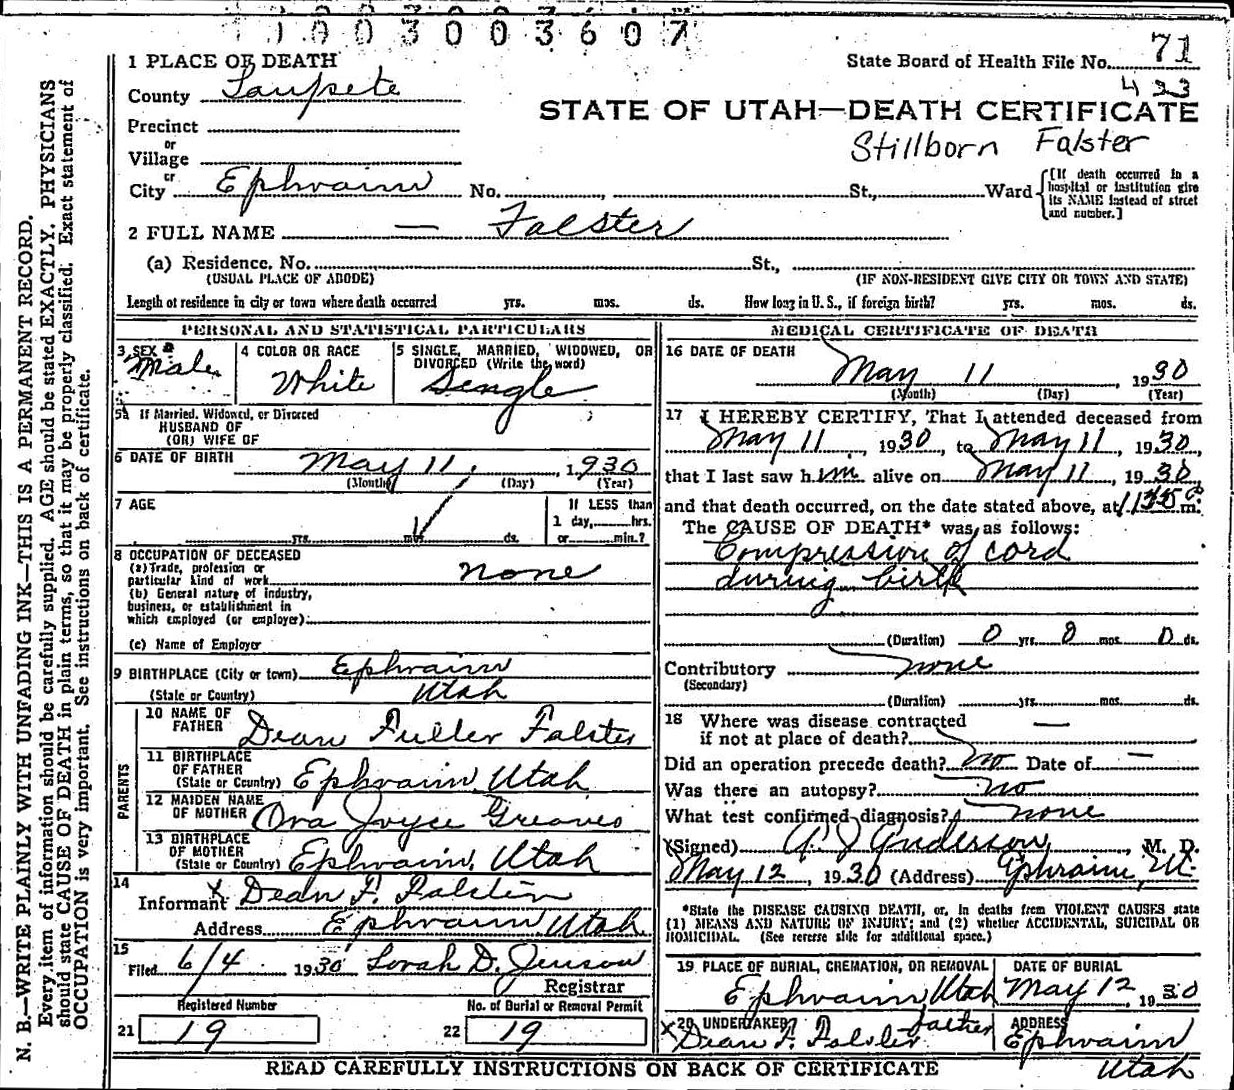 1003003607
1 PLACE OF DEATH
State Board of Health File No. 71
433
County Sanpete
STATE OF UTAH—DEATH CERTIFICATE
Precinct
Stillborn Falster
or
Village
or
City Ephraim No. , St., Ward
[If death occurred in a hospital or institution give its NAME instead of street and number.]
2 FULL NAME — Falster
(a) Residence. No. St.,
(USUAL PLACE OF ABODE) (IF NON-RESIDENT GIVE CITY OR TOWN AND STATE)
Length of residence in city or town where death occurred yrs. mos. ds. How long in U. S., if foreign birth? yrs. mos. ds.
PERSONAL AND STATISTICAL PARTICULARS
3 SEX Male
4 COLOR OR RACE White
5 SINGLE, MARRIED, WIDOWED, OR DIVORCED (Write the word) Single
5a If Married, Widowed, or Divorced
HUSBAND OF
(OR) WIFE OF
6 DATE OF BIRTH May 11, 1930
(Month) (Day) (Year)
7 AGE
If LESS than
1 day, hrs.
yrs. mos. ds. or min.?
8 OCCUPATION OF DECEASED
(a) Trade, profession or
particular kind of work none
(b) General nature of industry,
business, or establishment in
which employed (or employer):
(c) Name of Employer
9 BIRTHPLACE (City or town) Ephraim
(State or Country) Utah
PARENTS
10 NAME OF FATHER Dean Fuller Falster
11 BIRTHPLACE OF FATHER
(State or Country) Ephraim, Utah
12 MAIDEN NAME OF MOTHER Ora Joyce Greaves
13 BIRTHPLACE OF MOTHER
(State or Country) Ephraim, Utah
14
Informant X Dean F. Falster
Address Ephraim Utah
15
Filed 6/4 1930 Lorah D. Jenson
Registrar
Registered Number No. of Burial or Removal Permit
21 19 22 19
MEDICAL CERTIFICATE OF DEATH
16 DATE OF DEATH
May 11, 1930
(Month) (Day) (Year)
17 I HEREBY CERTIFY, That I attended deceased from
May 11, 1930, to May 11, 1930,
that I last saw him alive on May 11, 1930
and that death occurred, on the date stated above, at m.
The CAUSE OF DEATH* was as follows:
Compression of cord
during birth
(Duration) 0 yrs. 0 mos. 0 ds.
Contributory none
(Secondary)
(Duration) yrs. mos. ds.
18 Where was disease contracted
if not at place of death? —
Did an operation precede death? No Date of —
Was there an autopsy? no
What test confirmed diagnosis? none
(Signed) A J Anderson, M. D.
May 12, 1930 (Address) Ephraim, Ut.
*State the DISEASE CAUSING DEATH, or, in deaths from VIOLENT CAUSES state
(1) MEANS AND NATURE OF INJURY; and (2) whether ACCIDENTAL, SUICIDAL OR
HOMICIDAL. (See reverse side for additional space.)
19 PLACE OF BURIAL, CREMATION, OR REMOVAL DATE OF BURIAL
Ephraim, Utah May 12, 1930
20 UNDERTAKER ADDRESS
X Dean F. Falster father Ephraim
Utah
READ CAREFULLY INSTRUCTIONS ON BACK OF CERTIFICATE
N. B.—WRITE PLAINLY WITH UNFADING INK—THIS IS A PERMANENT RECORD.
Every item of information should be carefully supplied. AGE should be stated EXACTLY. PHYSICIANS
should state CAUSE OF DEATH in plain terms, so that it may be properly classified. Exact statement of
OCCUPATION is very important. See instructions on back of certificate.